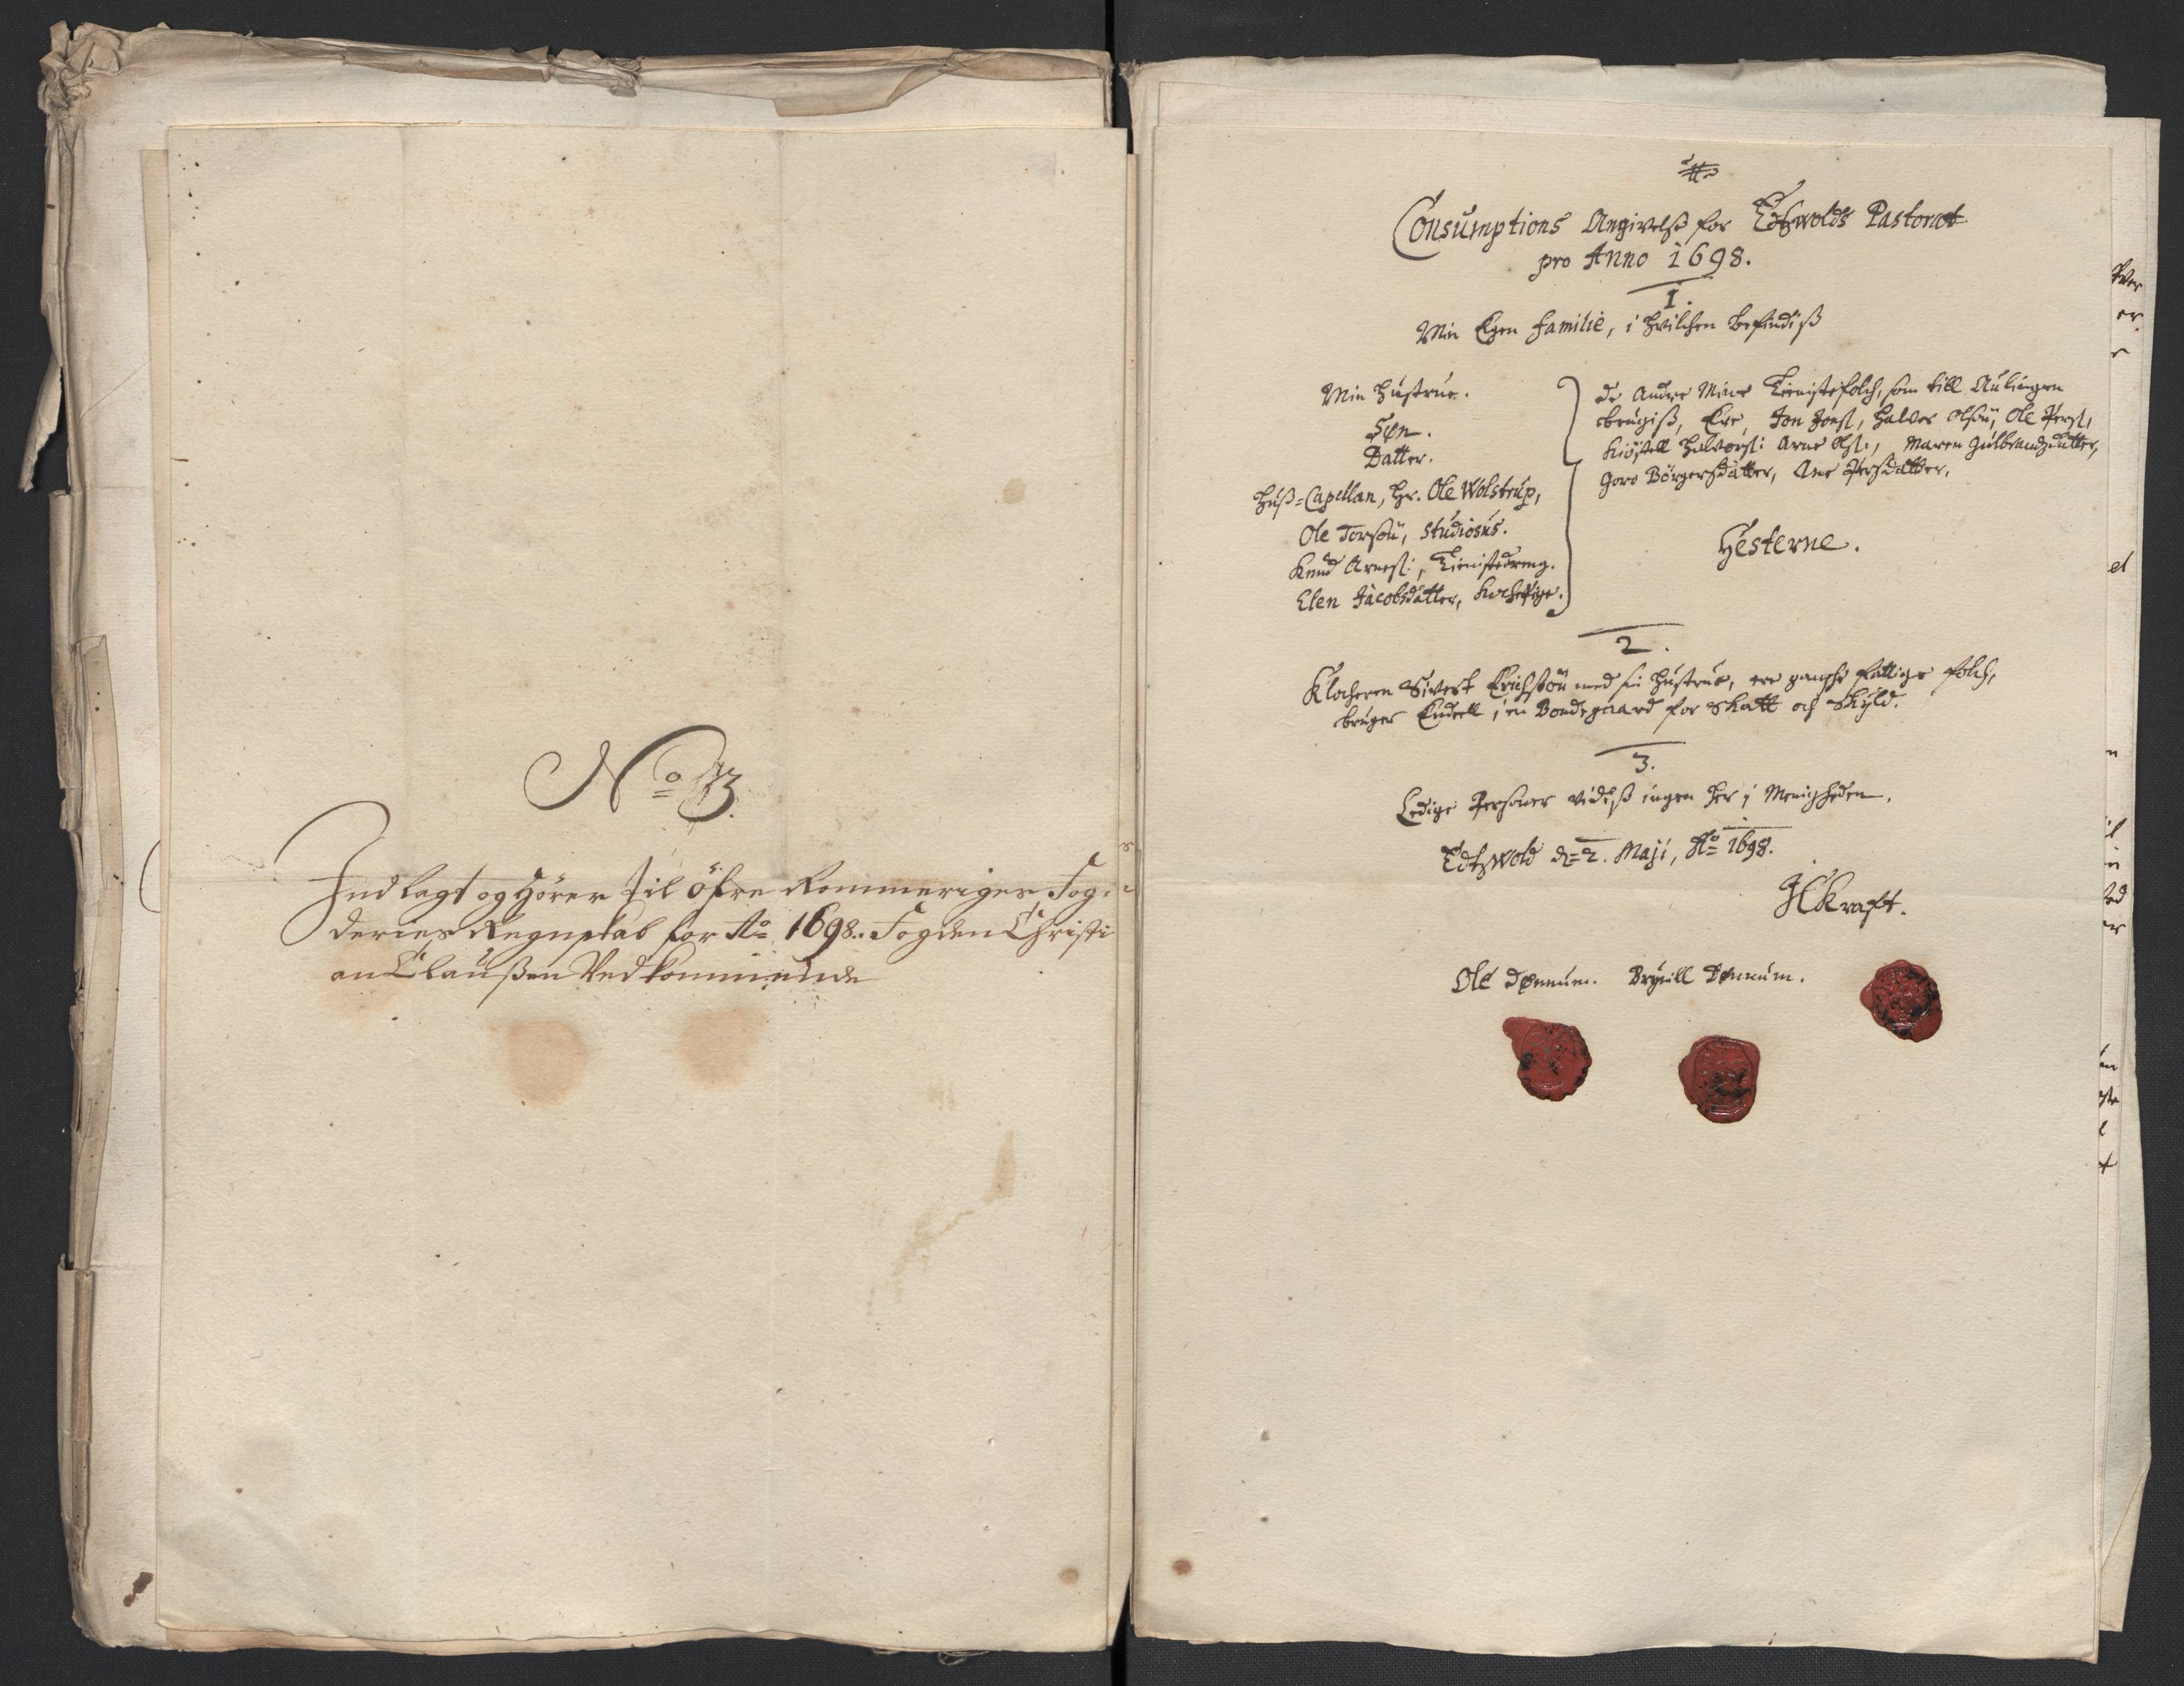 No 13.
Indlagt og hörer til öfre Rommeriges Fog-
deries Regnskab for Ao 1698. Fogden Christi
an Claußen Vedkommende
Consumptions Angivelß for Edtzwolds Pastorat
pro Anno 1698.
1.
Min Egen Familie, i hvilchen befindiß
Min Hustrue.
Søn.
Datter.
Huß-Capellan, Hr. Ole Wolstrup,
Ole Torsøn, Studiosus.
Knud Arneß:, Tienistedreng.
Elen Jacobsdatter, Kochepige.
De Andre Mine Tienistefolch, som till Aulingen
brugiß, Ere, Jon Jonß, Halvor Olsøn, Ole Perß,
Kiøstell Halvorß: Arne Olß:, Maren Gulbrandzdatter,
Goro Börgersdatter, Ane Persdatter.
Hesterne.
2.
Klocheren Sivert Erichsøn med sin Hustrue, ere gansche fattige folch,
bruger Endeell i en Bondegaard for Skatt och Skyld.
3.
Ledige Personer vidiß ingen her i Menigheden.
Edtzwold d= 2. Maji, Ao 1698.
HKraft.
Ole Dønnum. Brynill Dønnum.